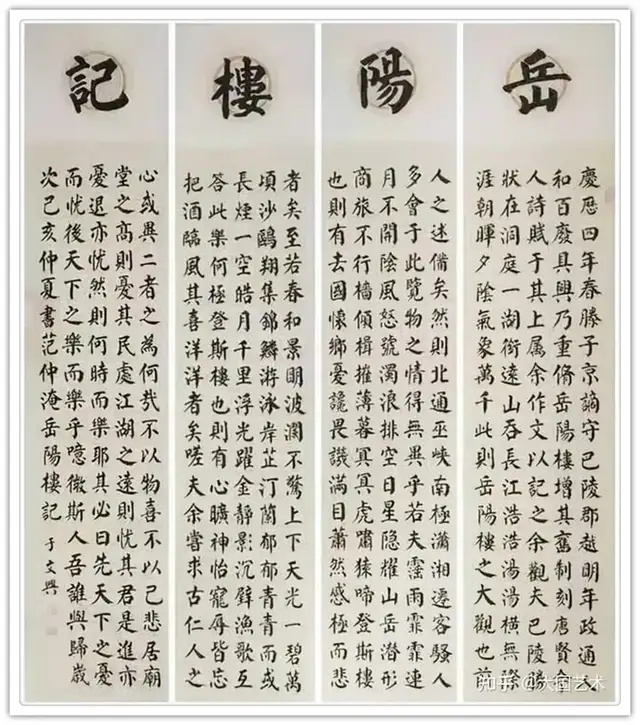 岳陽樓記
慶曆四年春滕子京謫守巴陵郡越明年政通人
和百廢具興乃重脩岳陽樓增其舊制刻唐賢今
人詩賦于其上属余作文以記之余觀夫巴陵勝
狀在洞庭一湖銜遠山吞長江浩浩湯湯橫無際
涯朝暉夕陰氣象萬千此則岳陽樓之大觀也前
人之述備矣然則北通巫峽南極瀟湘遷客騷人
多會于此覽物之情得無異乎若夫霪雨霏霏連
月不開陰風怒號濁浪排空日星隱耀山岳潛形
商旅不行檣傾楫摧薄暮冥冥虎嘯猿啼登斯樓
也則有去國懷鄉憂讒畏譏滿目蕭然感極而悲
者矣至若春和景明波瀾不驚上下天光一碧萬
頃沙鷗翔集錦鱗游泳岸芷汀蘭郁郁青青而或
長煙一空皓月千里浮光躍金靜影沉璧漁歌互
答此樂何極登斯樓也則有心曠神怡寵辱皆忘
把酒臨風其喜洋洋者矣嗟夫余嘗求古仁人之
心或異二者之為何哉不以物喜不以己悲居廟
堂之高則憂其民處江湖之遠則忧其君是進亦
憂退亦忧然則何時而樂耶其必曰先天下之憂
而忧後天下之樂而樂乎噫微斯人吾誰與歸歲
次己亥仲夏書范仲淹岳陽樓記 于文興
知乎 @大国艺术